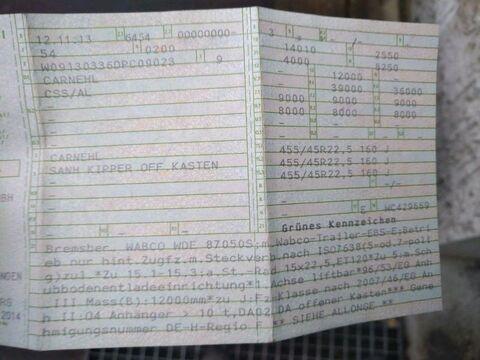 12.11.13 6454 00000000-
54 0200
W09130336DPC09023 9
CARNEHL
CSS/AL
–
–
CARNEHL
SANH KIPPER OFF.KASTEN
–
3 –
14010 – 2550
4000 – 8250
– 12000 –
– 39000 36000
9000 9000 9000
8000 8000 8000
– – –
455/45R22,5 160 J
455/45R22,5 160 J
455/45R22,5 160 J
–/–
– g WC429659
Grünes Kennzeichen
Bremsber. WABCO WDF 87050S;m.Wabco-Trailer-EBS E;Betri
eb nur hint.Zugfz.m.Steckverb.nach ISO7638(5-od.7-poli
g)zul.*Zu 15.1-15.3:a.St.-Rad 15x22,5,ET120*Zu 5:m.Sch
ubbodenentladeeinrichtung*1.Achse liftbar*96/53/EG Anh
III Mass(B):12000mm*zu J:Fz-Klasse nach 2007/46/EG An
h II:O4 Anhänger > 10 t,DA02:DA offener Kasten*** Gene
hmigungsnummer DE-H-Regio F ** SIEHE ALLONGE **
BH
NGEN
RS
2014